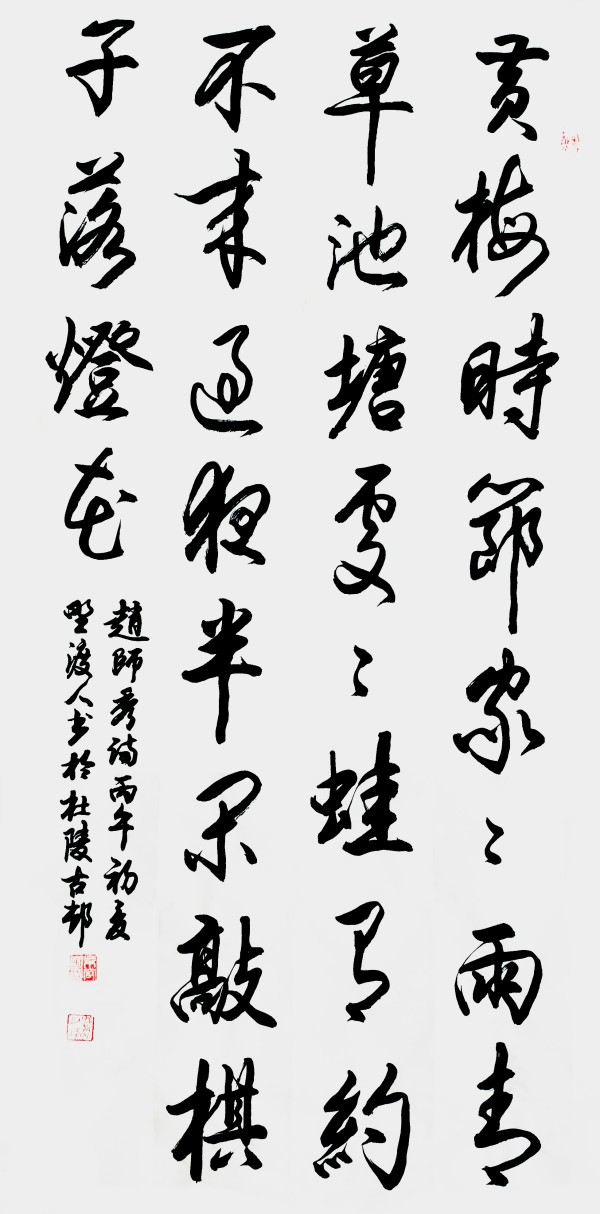 黄梅時節家〻雨青
草池塘處〻蛙有約
不来過夜半閑敲棋
子落燈花
趙師秀詩丙午初夏
野渡人书於杜陵古邨